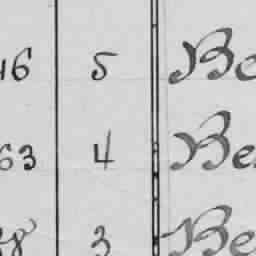 46 5 Be
63 4 Be
38 3 Be